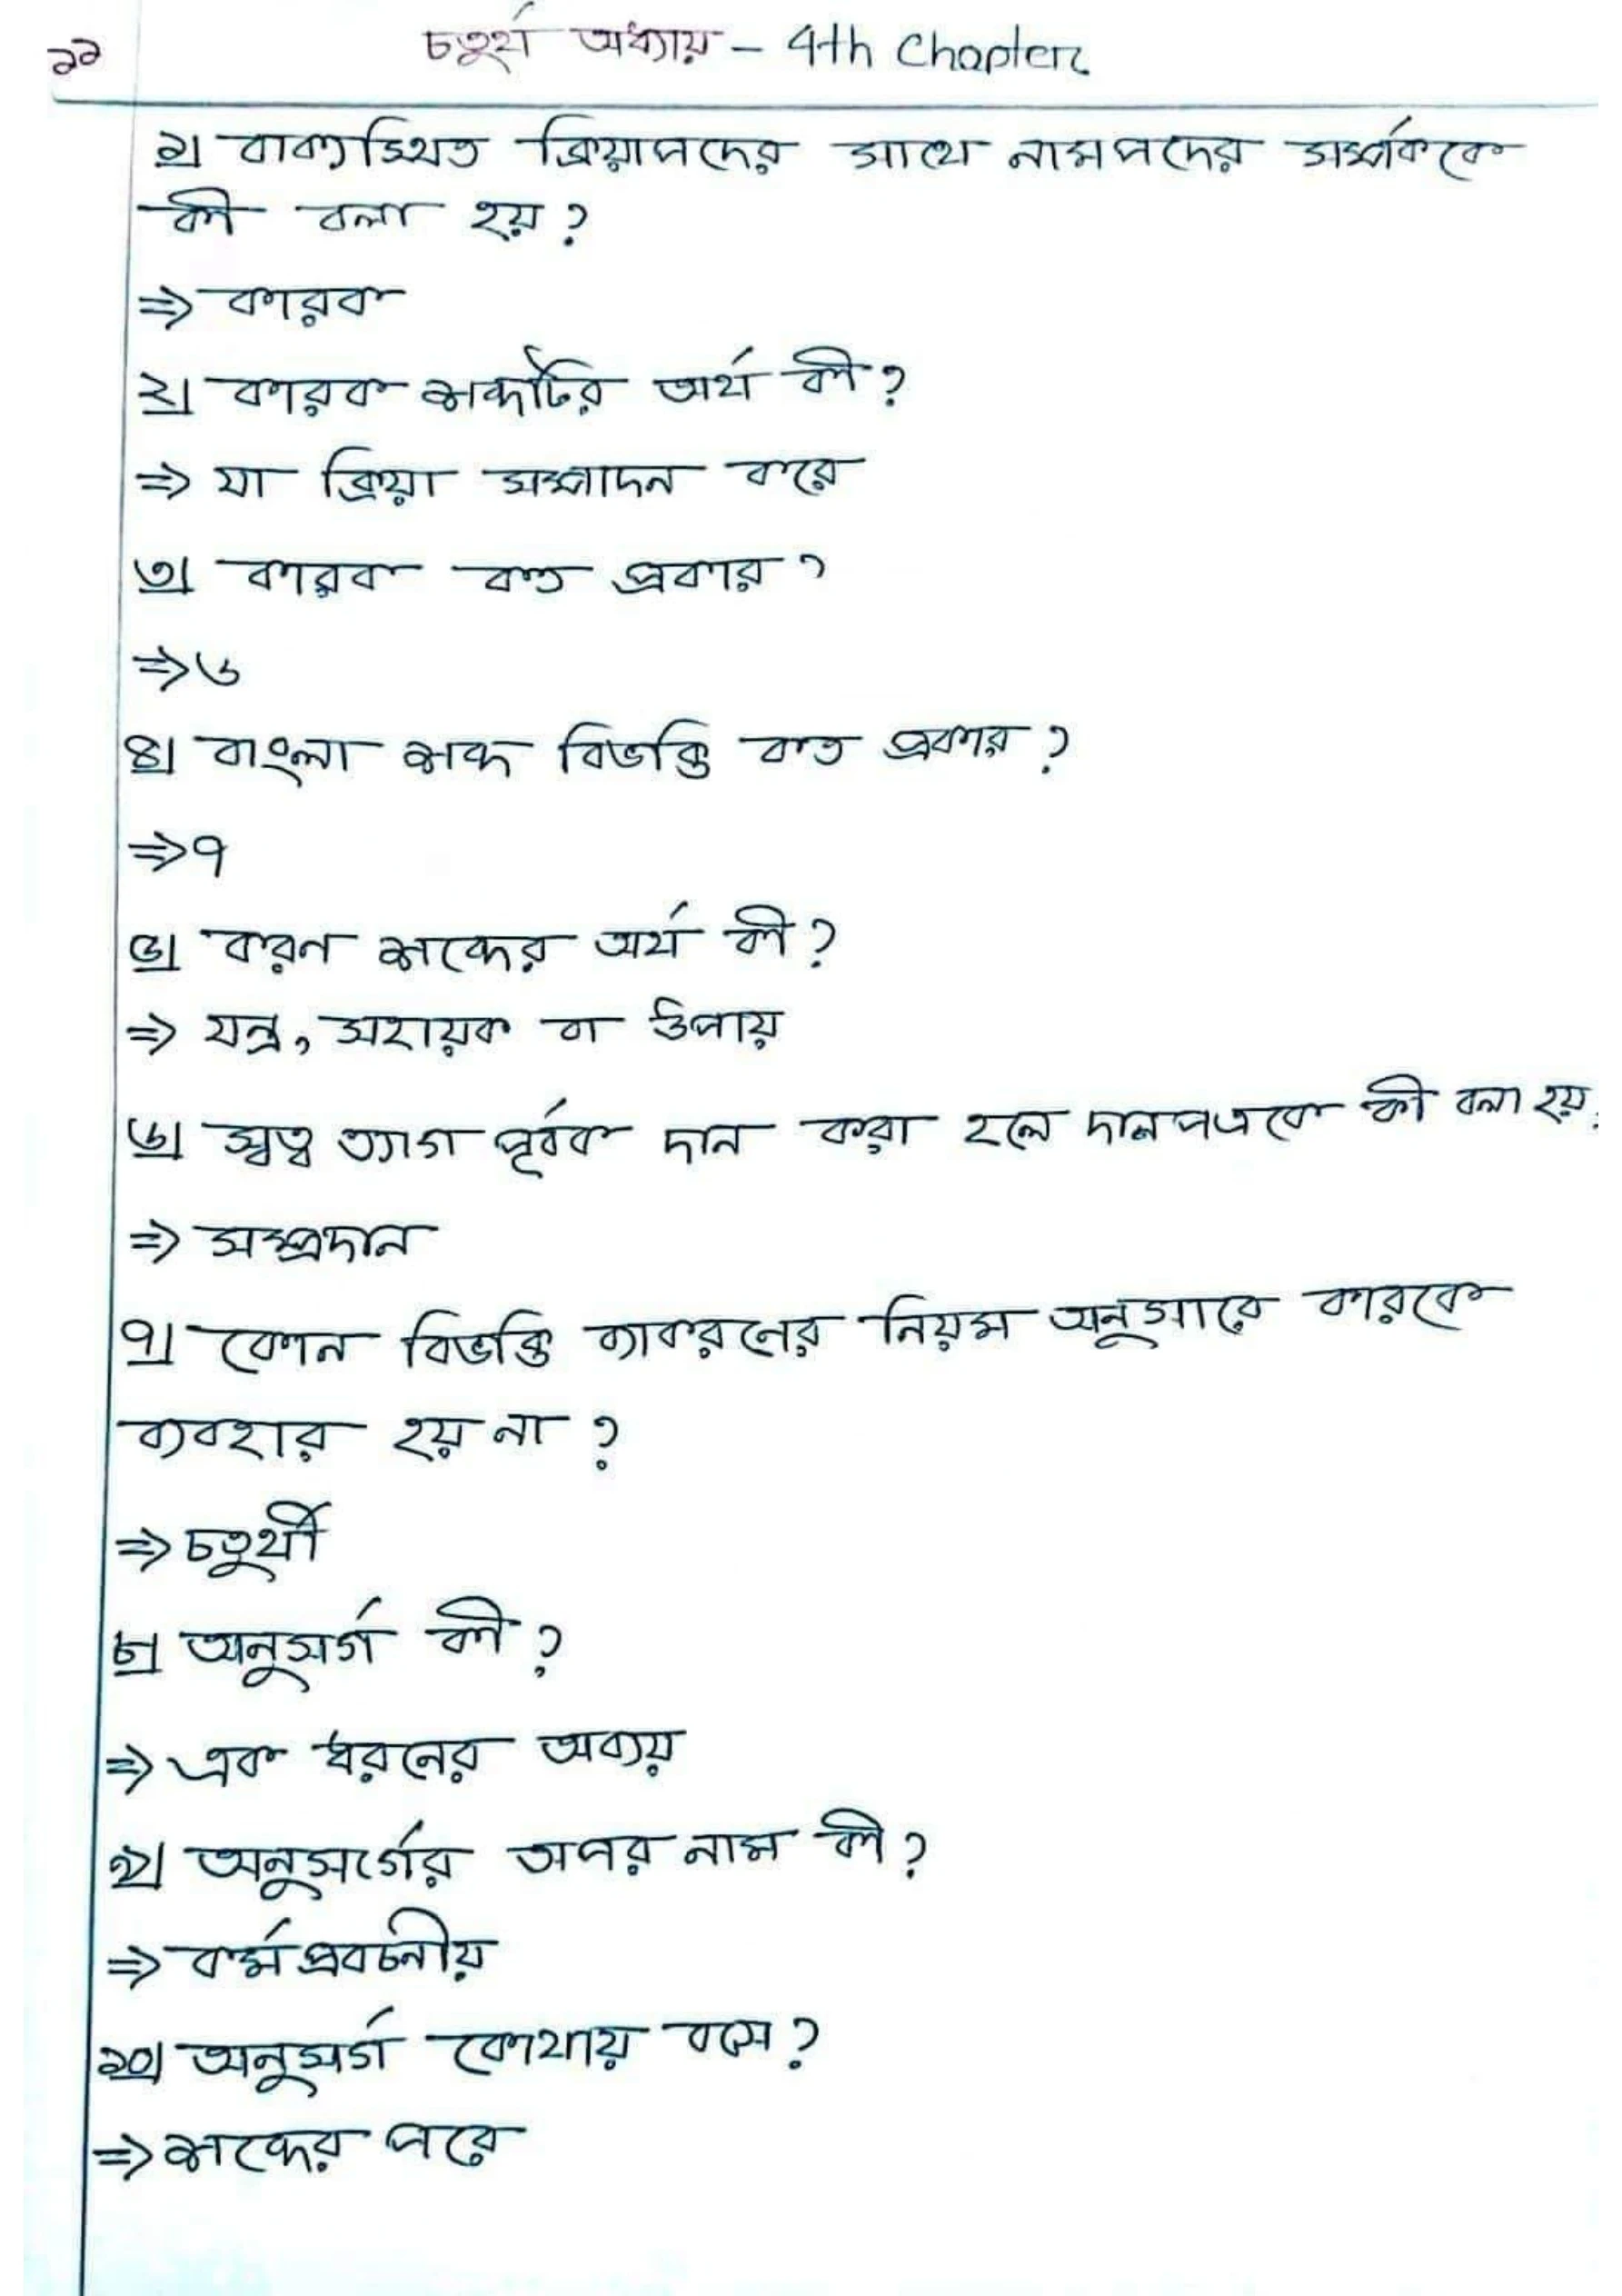 ১১
চতুর্থ অধ্যায় - 4th Chapter
১। বাক্যস্থিত ক্রিয়াপদের সাথে নামপদের সম্পর্ককে
কী বলা হয়?
⇒ কারক
২। কারক শব্দটির অর্থ কী?
⇒ যা ক্রিয়া সম্পাদন করে
৩। কারক কত প্রকার?
⇒ ৬
৪। বাংলা শব্দ বিভক্তি কত প্রকার?
⇒ ৭
৫। করণ শব্দের অর্থ কী?
⇒ যন্ত্র, সহায়ক বা উপায়
৬। স্বত্ব ত্যাগ পূর্বক দান করা হলে দানপত্রকে কী বলা হয়.
⇒ সম্প্রদান
৭। কোন বিভক্তি ব্যাকরনের নিয়ম অনুসারে কারকে
ব্যবহার হয় না?
⇒ চতুর্থী
৮। অনুসর্গ কী?
⇒ এক ধরনের অব্যয়
৯। অনুসর্গের অপর নাম কী?
⇒ কর্মপ্রবচনীয়
১০। অনুসর্গ কোথায় বসে?
⇒ শব্দের পরে